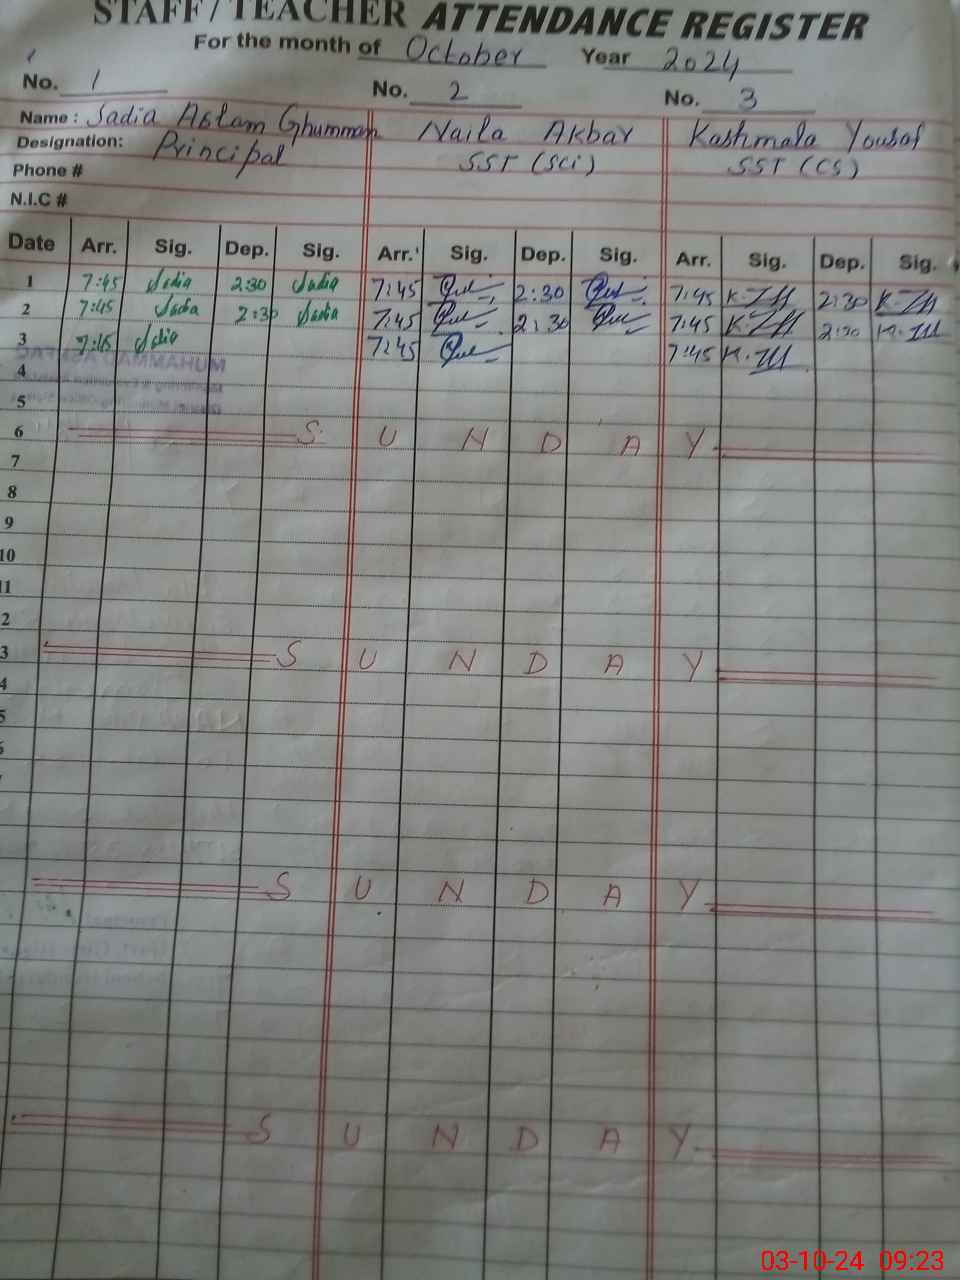 STAFF / TEACHER ATTENDANCE REGISTER
For the month of October Year 2024
No. 1 No. 2 No. 3
Name : Sadia Aslam Ghumman Naila Akbar Kashmala Yousaf
Designation: Principal SST (Sci) SST (CS)
Phone #
N.I.C #
Date Arr. Sig. Dep. Sig. Arr. Sig. Dep. Sig. Arr. Sig. Dep. Sig.
1 7:45 Sadia 2:30 Sadia 7:45 2:30 7:45 2:30
2 7:45 Sadia 2:30 Sadia 7:45 2:30 7:45 2:30
3 7:45 Sadia 7:45 7:45
4
5
6 S U N D A Y
7
8
9
10
11
2
3 S U N D A Y
4
5
S U N D A Y
S U N D A Y
03-10-24 09:23